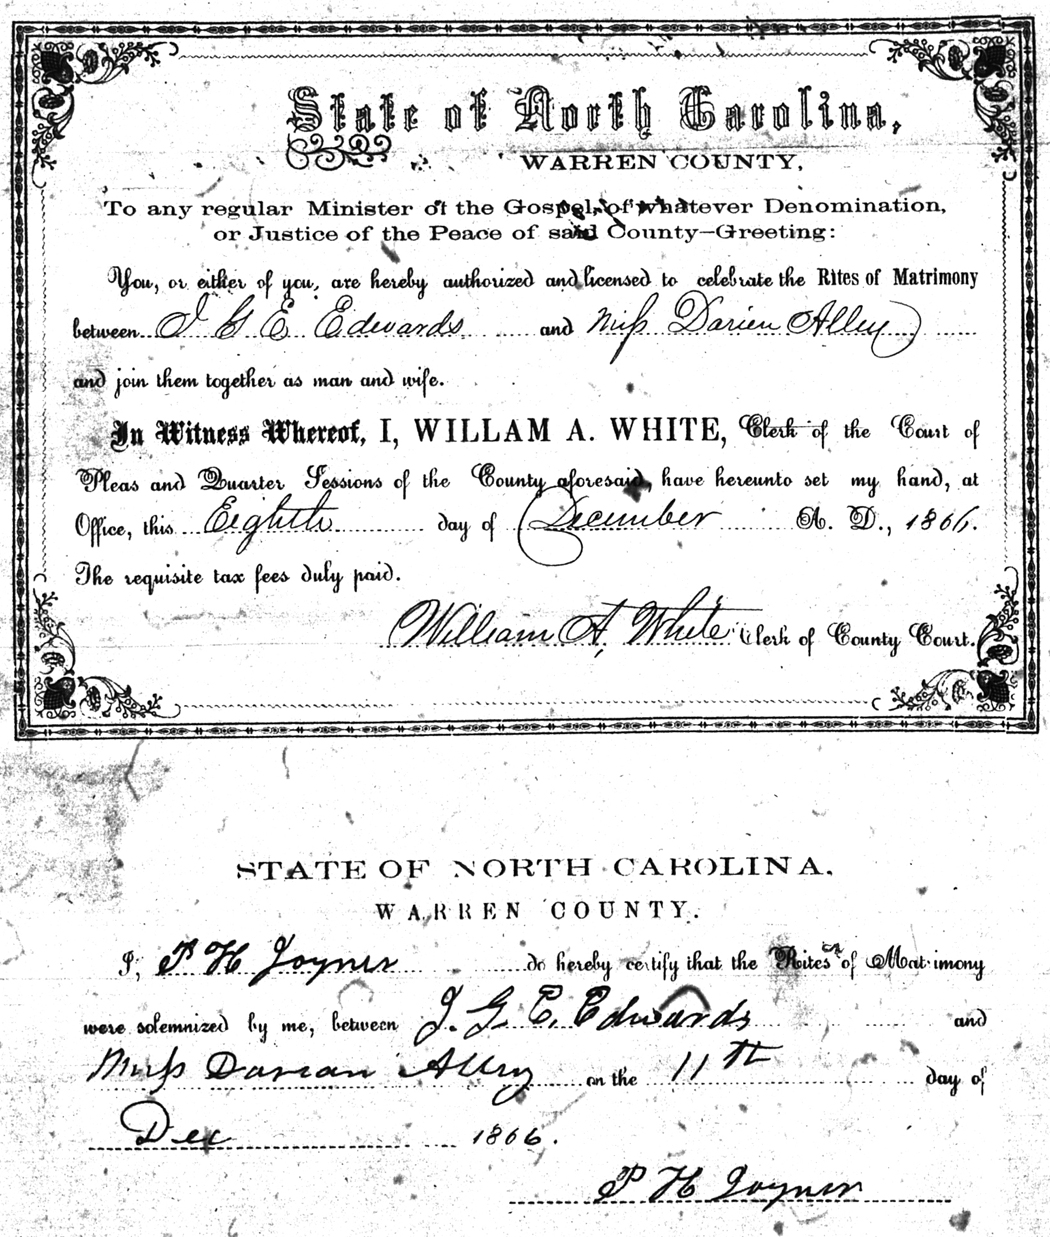 State of North Carolina,
WARREN COUNTY,
To any regular Minister of the Gospel, of whatever Denomination,
or Justice of the Peace of said County—Greeting:
You, or either of you, are hereby authorized and licensed to celebrate the Rites of Matrimony
between J G E Edwards and Miss Darien Alley
and join them together as man and wife.
In Witness Whereof, I, WILLAM A. WHITE, Clerk of the Court of
Pleas and Quarter Sessions of the County aforesaid, have hereunto set my hand, at
Office, this Eighth day of December A. D., 1866.
The requisite tax fees duly paid.
William A. White Clerk of County Court.
STATE OF NORTH CAROLINA.
WARREN COUNTY.
I, P H Joyner do hereby certify that the Rites of Matrimony
were solemnized by me, between J. G. E. Edwards and
Miss Darian Alley on the 11th day of
Dec 1866.
P H Joyner